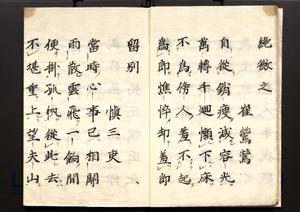 絶微之
崔鶯鶯
自從銷瘦減容光
萬轉千廻懶下床
不為傍人羞不起
為郎憔悴却羞郎
留別
慎三史
當時心事已相關
雨散雲飛一餉間
便掛孤帆從此去
不堪重上望夫山